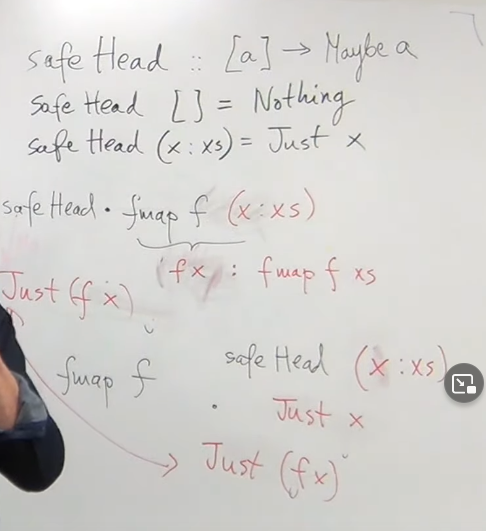 safe Head :: [a] → Maybe a
safe Head [] = Nothing
safe Head (x : xs) = Just x
safe Head • fmap f (x : xs)
(f x) : fmap f xs
Just (f x)
fmap f • safe Head (x : xs)
Just x
Just (f x)